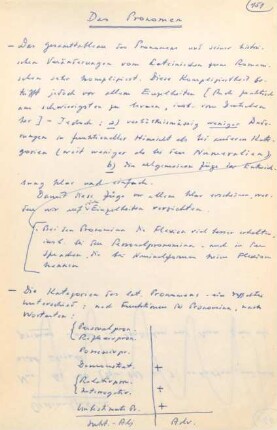 151
Das Pronomen
— Das Gesamtsystem des Pronomens und seiner histori-
schen Veränderungen vom Lateinischen zum Romani-
schen sehr kompliziert. Diese Kompliziertheit be-
trifft jedoch vor allem Einzelheiten [Auch praktisch
am schwierigsten zu lernen, insb. von Deutschen
her] – Jedoch: a) verhältnismäßig weniger
in funktioneller Hinsicht als bei anderen Kate-
gorien (weit weniger als bei den Numeralien);
b) Die allgemeinen Züge der Entwick-
lung klar und einfach.
Damit diese Züge vor allem klar erscheinen, wer-
den wir auf Einzelheiten verzichten
Bei den Pronomina die Flexion viel besser erhalten,
insb. bei den Personalpronomina, und in den
Sprachen, die bei Nominalformen keine Flexion
kennen
— Die Kategorien des lat. Pronomens –
Unterschied: nach Funktionen die Pronomina, nach
Wortarten:
Personalpron.
Reflexivpron.
Possessivpr.
Demonstrat. +
Relativpron. +
Interrogativ.
Indefinita Pr. +
Subst.-Adj. Adv.